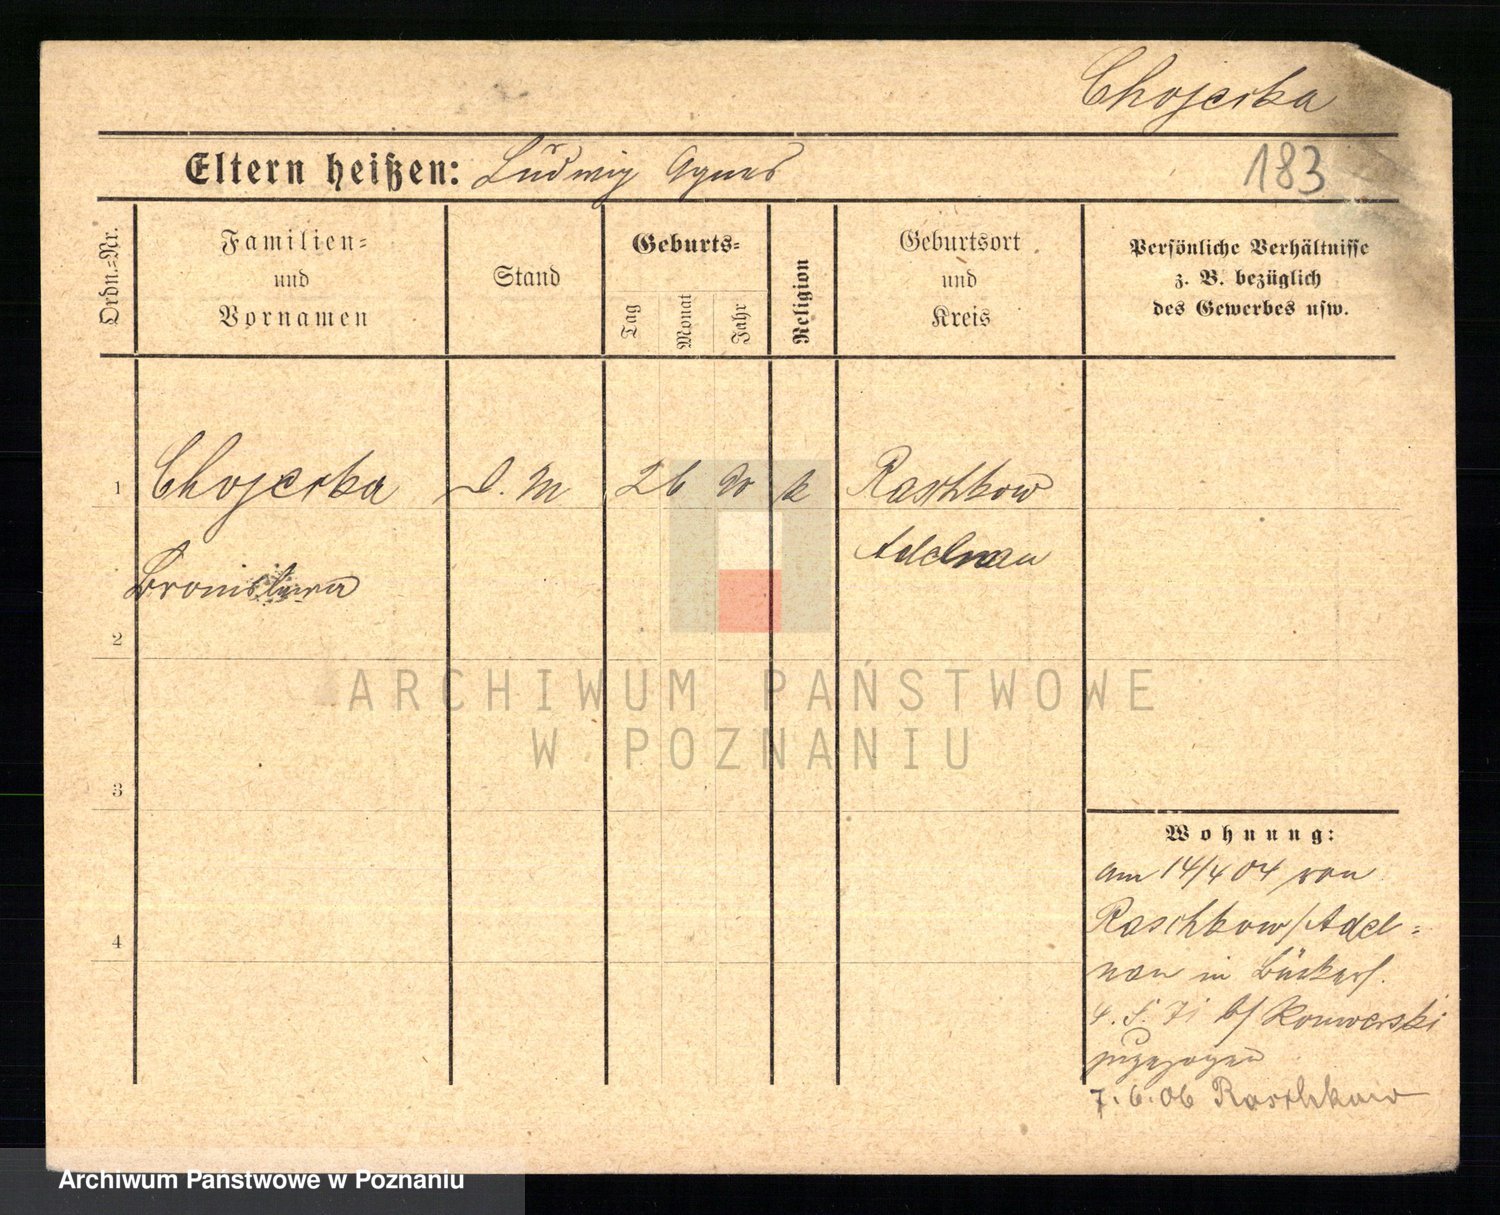 Chojecka
Eltern heißen: Ludwig Agnes
183
Ordn.-Nr.
Familien-
und
Vornamen
Stand
Geburts-
Tag
Monat
Jahr
Religion
Geburtsort
und
Kreis
Persönliche Verhältnisse
z. B. bezüglich
des Gewerbes usw.
1 Chojecka D. M 26 k Raschkow
Adelnau
Bronislawa
2
3
4
Wohnung:
am 14/4 04 von
Raschkow/Adel-
nau in
b/
zugezogen
7. 6. 06 Raschkow
ARCHIWUM PAŃSTWOWE
W POZNANIU
Archiwum Państwowe w Poznaniu